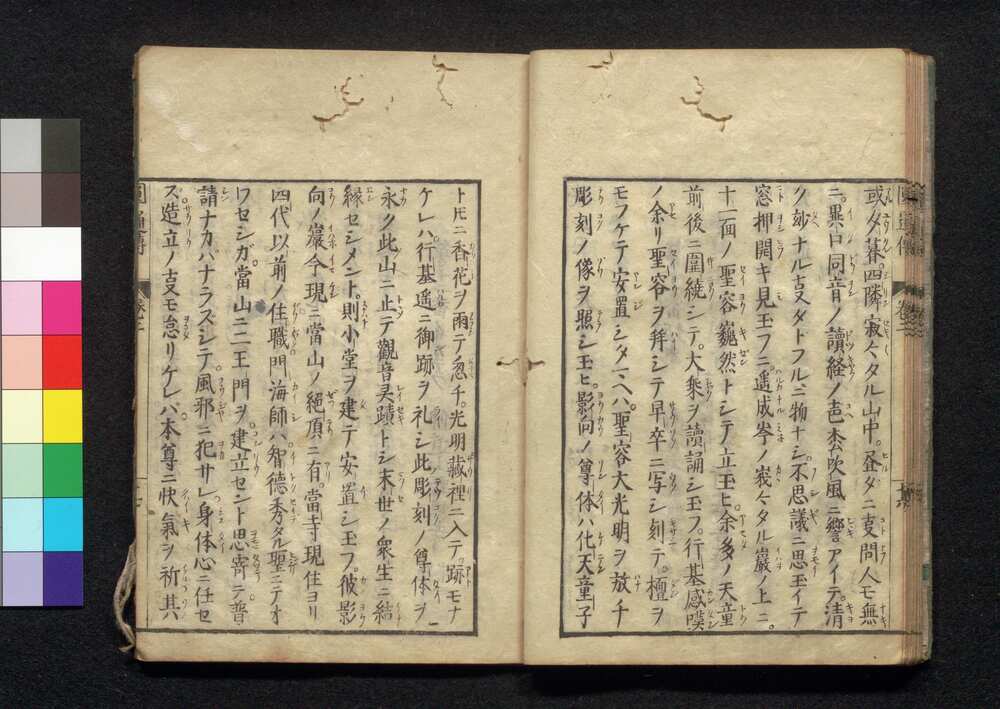 或夕暮四隣寂々タル山中。昼タニ叓問人モ無
ニ。異口同音ノ讀経ノ声松吹風ニ響アイテ。清
ク妙ナル叓タトフルニ物ナシ不思議ニ思玉イテ
窓押開キ見玉フニ。遥成岑ノ峩々タル巖ノ上ニ。
十一面ノ聖容巍然トシテ立玉ヒ。余多ノ天童
前後ニ圍繞シテ。大乘ヲ讀誦シ玉フ。行基感嘆
ノ余リ聖容ヲ拜シテ早卒ニ写シ刻テ。檀ヲ
モフケテ安置シタマヘハ。聖容大光明ヲ放チ
彫刻ノ像ヲ照シ玉ヒ。影向ノ尊体ハ化天童子
トモニ香花ヲ雨テ忽チ。光明藏裡ニ入テ。跡モナ
ケレハ。行基遥ニ御跡ヲ礼シ此彫刻ノ尊体ヲ
永ク此山ニ止テ觀音灵蹟トシ末世ノ衆生ニ結
縁セシメント。則小堂ヲ建テ安置シ玉フ。彼影
向ノ巖今現ニ當山ノ絶頂ニ有。當寺現住ヨリ
四代以前ノ住職門海師ハ智德秀タル聖ニテオ
ワセシガ。當山ニ二王門ヲ建立セント思寄テ。普
請ナカバナラズシテ。風邪ニ犯サレ身体心ニ任セ
ス造立ノ叓モ怠リケレバ。本尊ニ快氣ヲ祈其